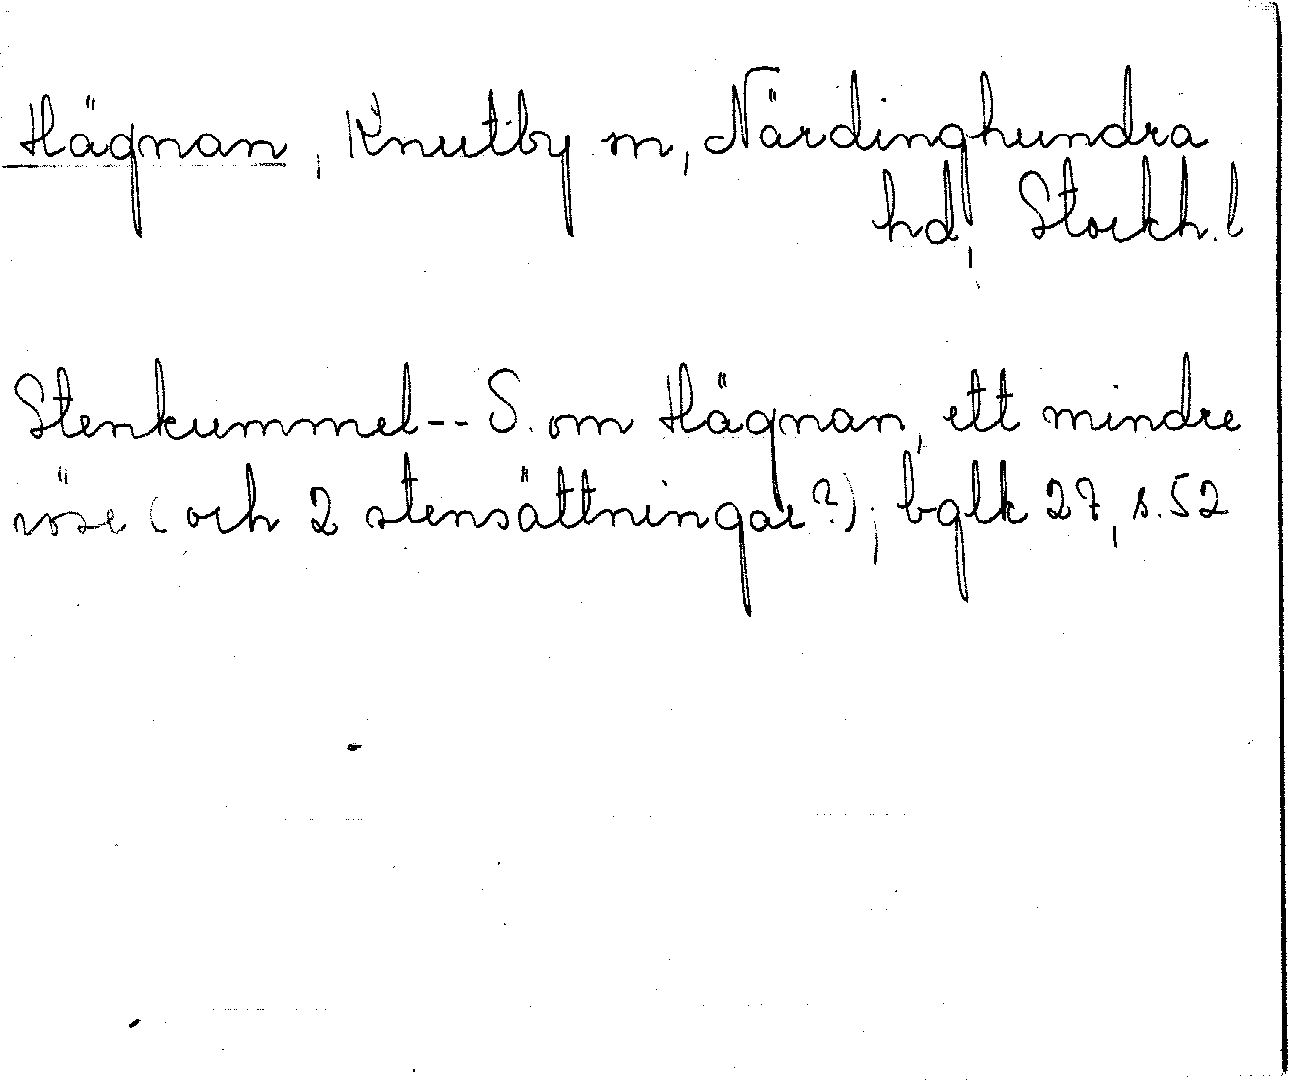 Hägnan, Knutby sn, Närdinghundra
hd, Stockh. l
Stenkummel -- S. om Hägnan, ett mindre
röse (och 2 stensättningar?); bglk 27, s. 52